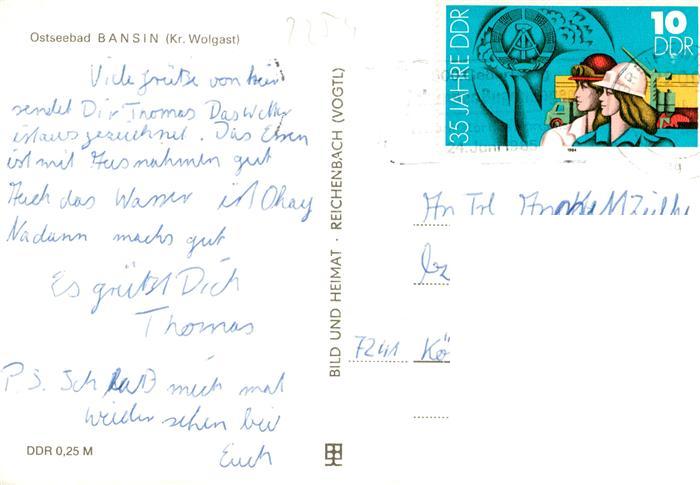 Ostseebad BANSIN (Kr. Wolgast)
Viele Grüße von hier
sendet Dir Thomas Das Wetter
ist ausgezeichnet. Das Essen
ist mit Ausnahmen gut
Auch das Wasser ist Okay
Nadann machs gut
Es grüßt Dich
Thomas
P.S. Ich laß mich mal
wieder sehen bei
Euch
DDR 0,25 M
BILD UND HEIMAT · REICHENBACH (VOGTL)
35 JAHRE DDR
10
DDR
1984
An Frl
7241 Kö